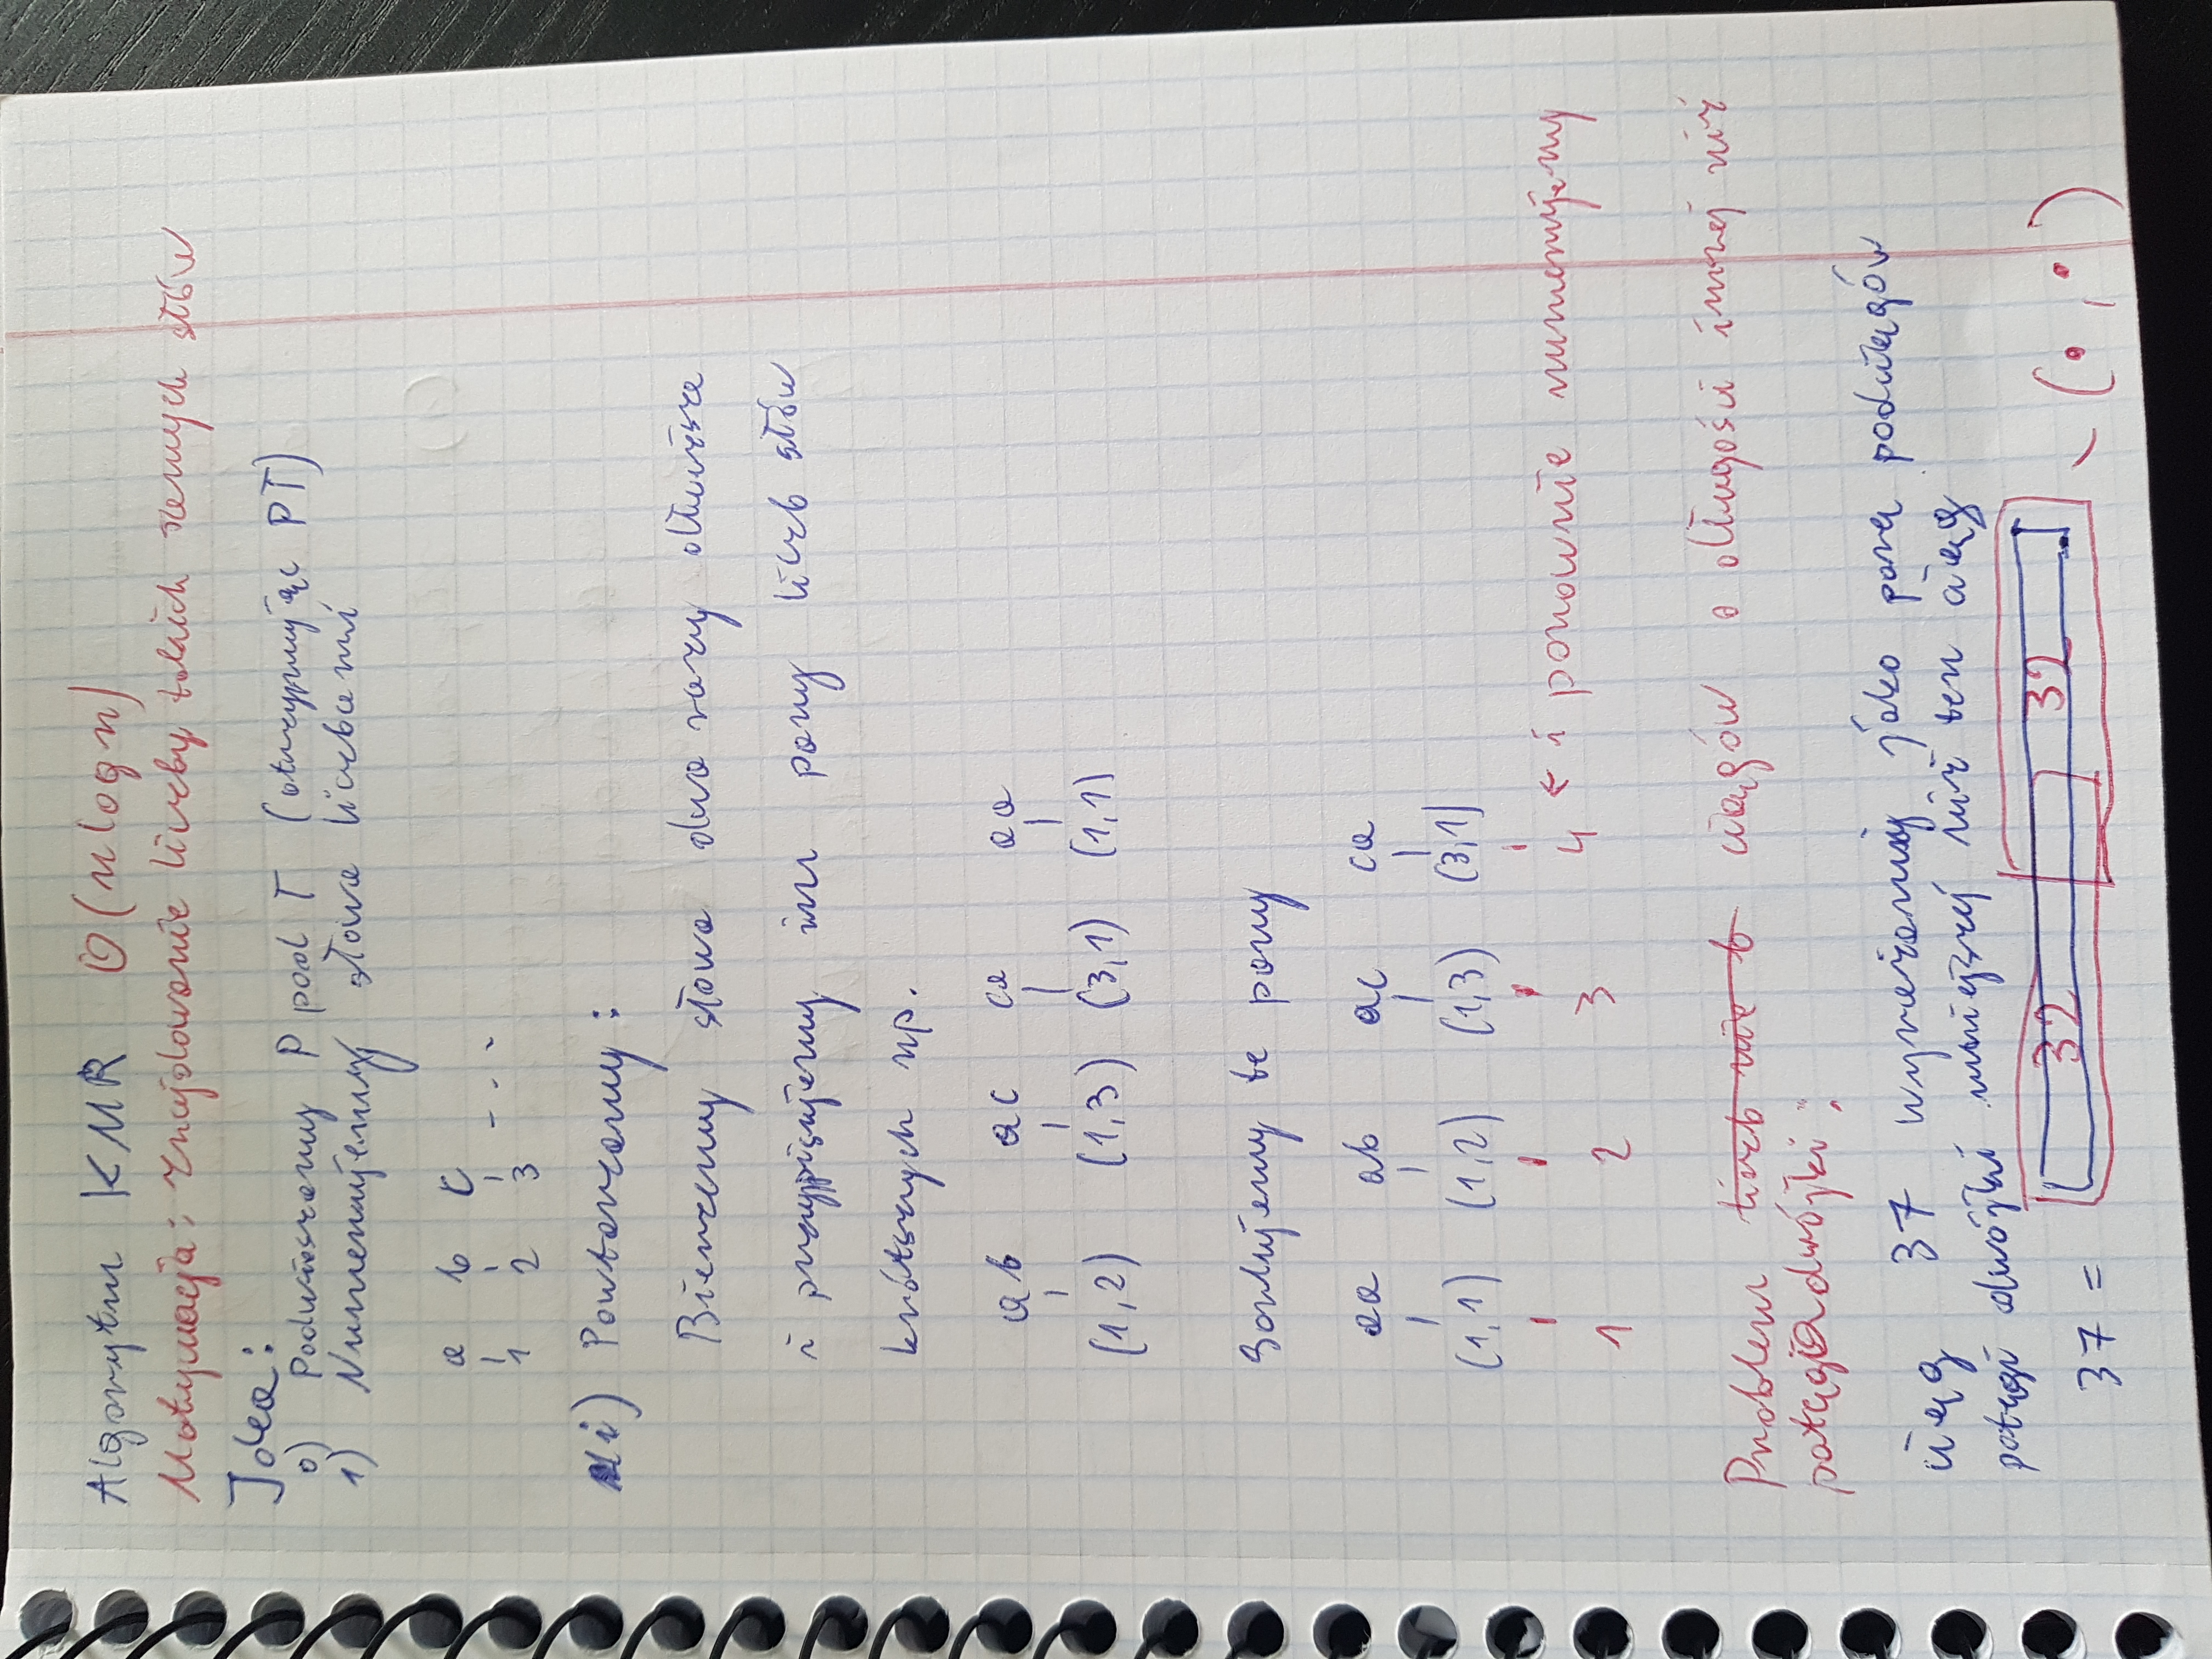 Algorytm KMR O(n log n)
Motywacja: Znajdowanie liczby takich samych słów
Idea:
0) Podwieszamy P pod T (otrzymując PT)
1) Numerujemy słowa liczbami
a b c
1 2 3 ...
i) Powtarzamy:
Bierzemy słowa dwa razy dłuższe
i przypisujemy im pary liczb słów
krótszych np.
ab ac ca aa
(1,2) (1,3) (3,1) (1,1)
Sortujemy te pary
aa ab ac ca
(1,1) (1,2) (1,3) (3,1)
1 2 3 4 ← i ponownie numerujemy
Problem liczb nie b ciągów o długości innej niż
potęga dwójki:
ciąg 37 wyrażamy jako parę podciągów
potęgi dwójki mniejszej niż ten ciąg
37 = 32 32 - (•,•)